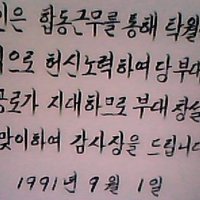 인은 합동근무를 통해 탁월
으로 헌신노력하여 당부대
공로가 지대하므로 부대창설
맞이하여 감사장을 드립니다
1991년 9월 1일